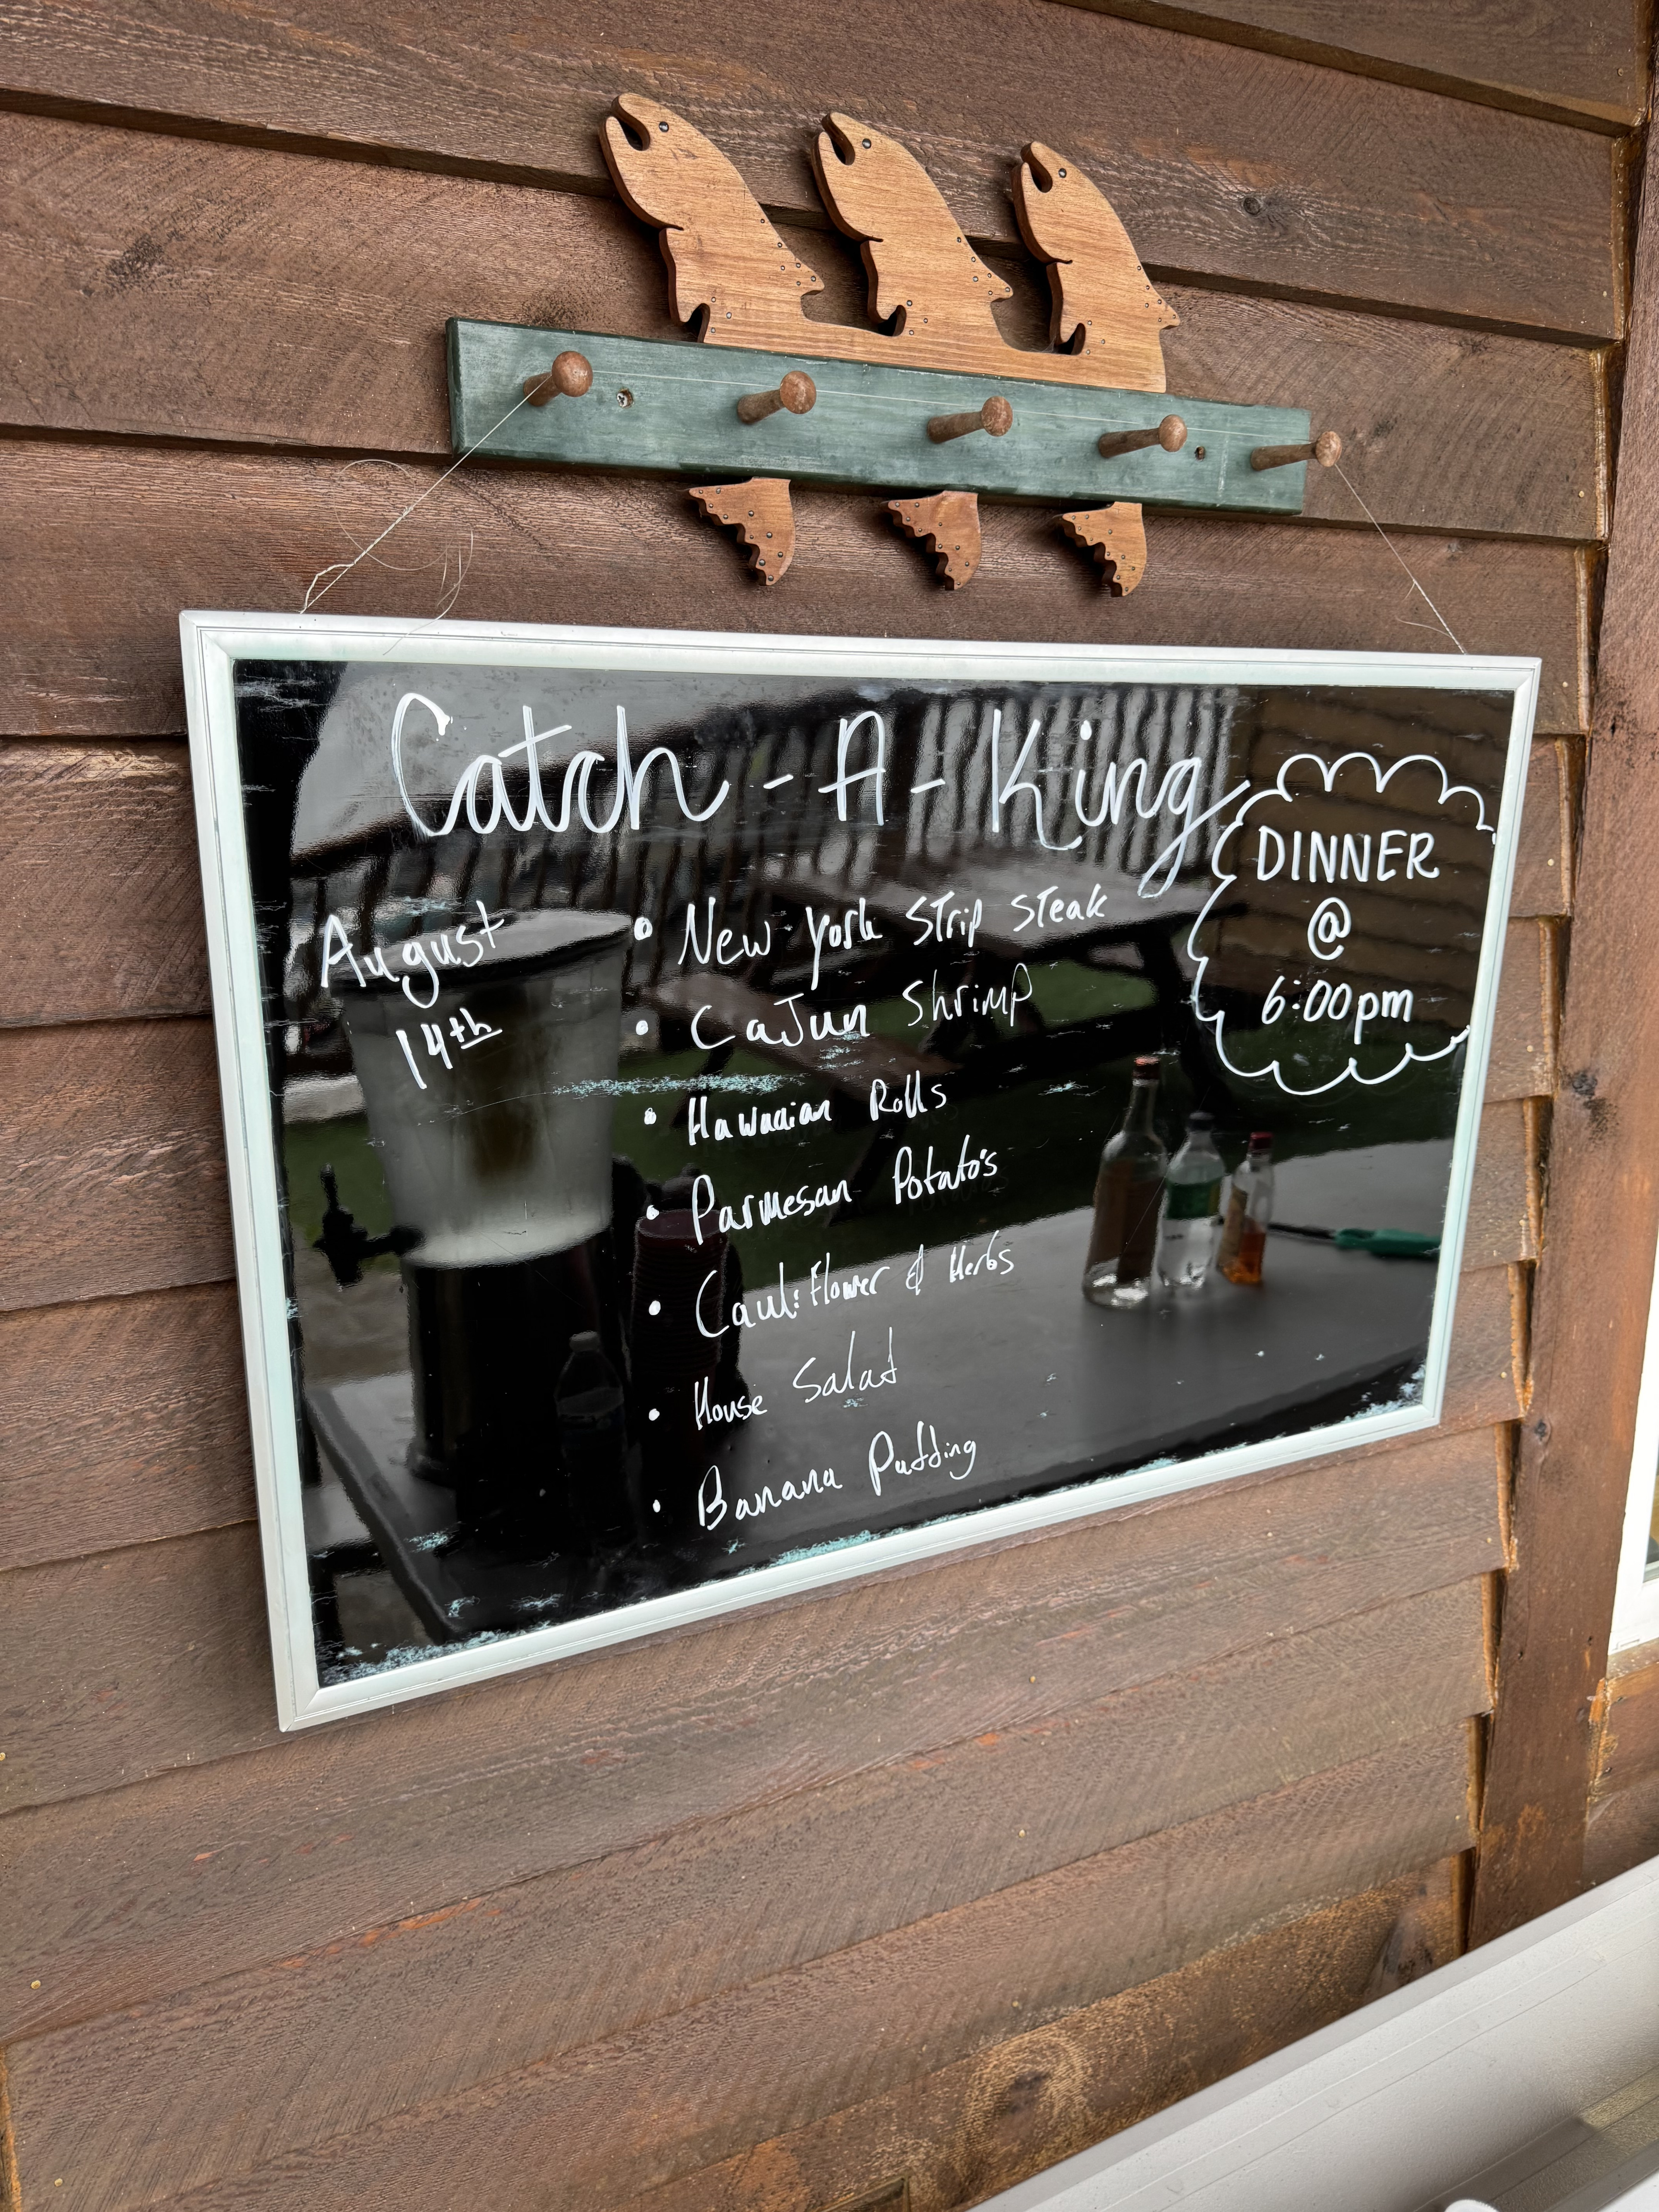 Catch-A-King
August
14th
DINNER
@
6:00pm
• New York Strip Steak
• Cajun Shrimp
• Hawaaian Rolls
• Parmesan Potato's
• Cauliflower & Herbs
• House Salad
• Banana Pudding